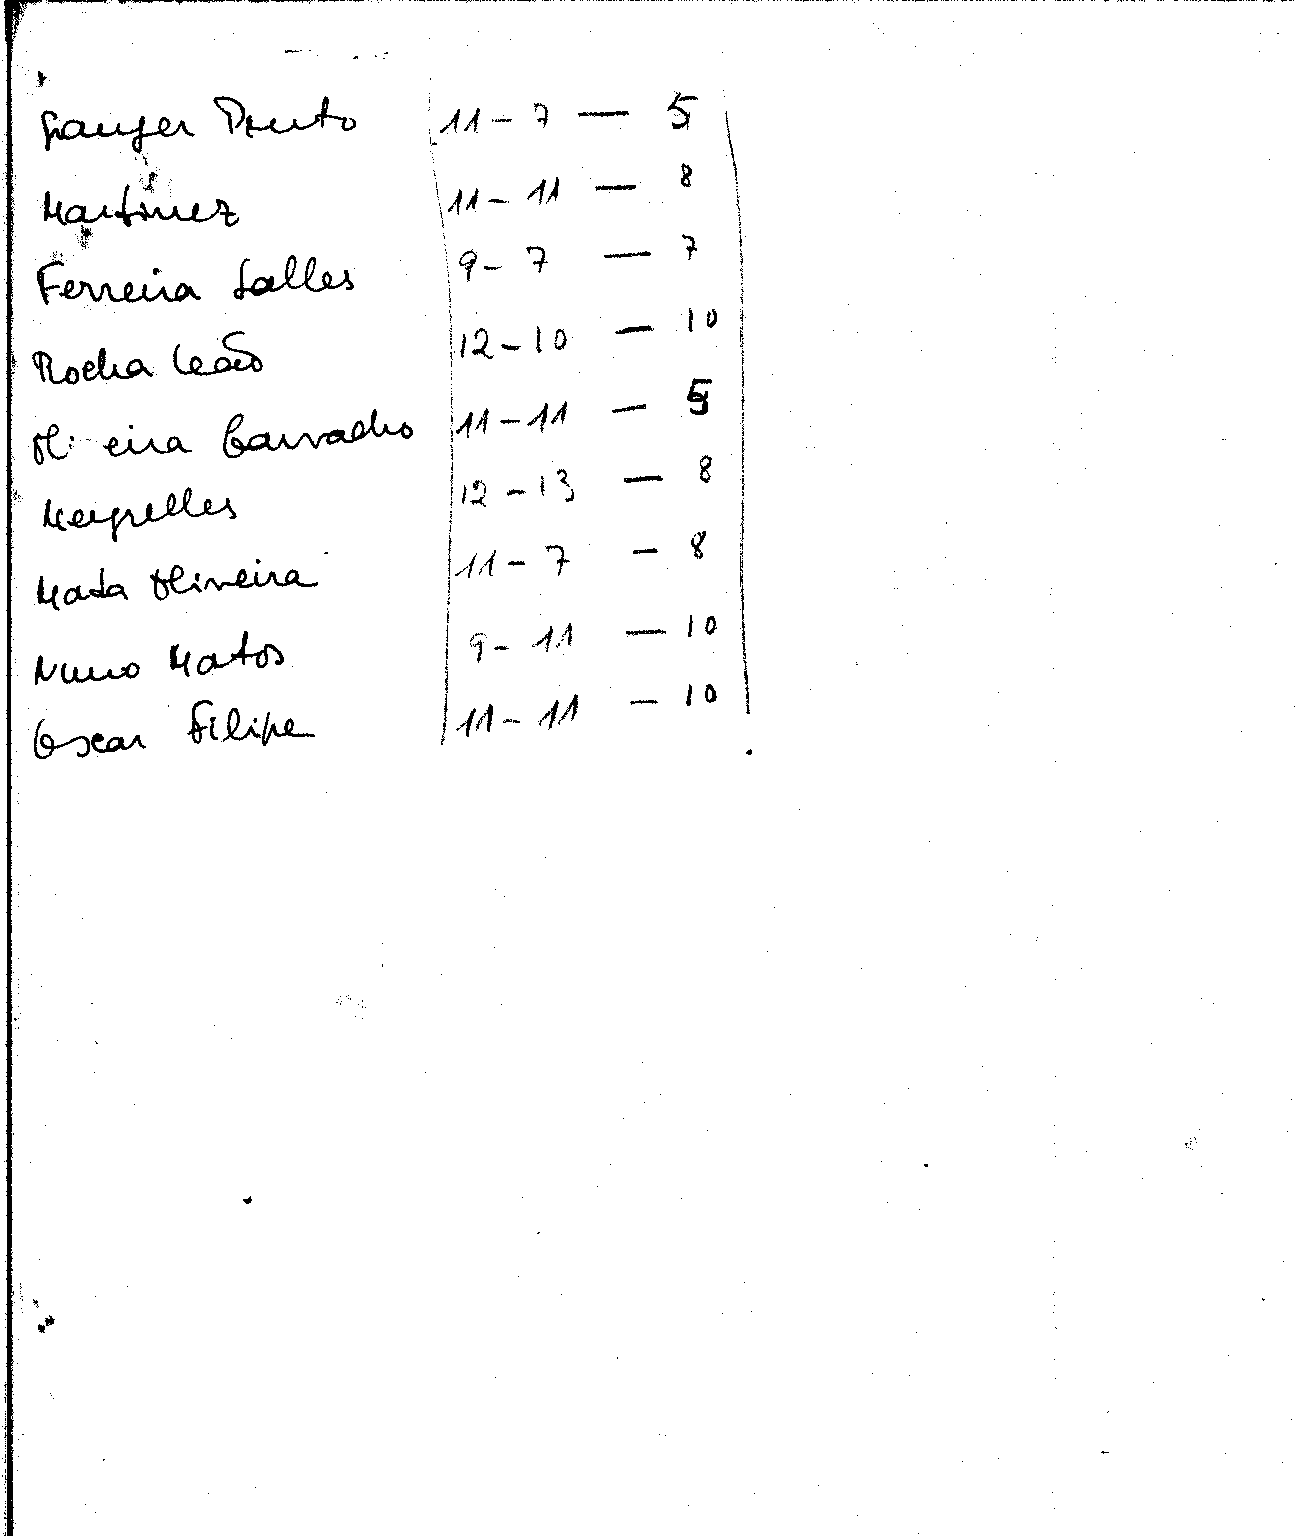 Pinto 11 - 7 — 5
Martinez 11 - 11 — 8
Ferreira Salles 9 - 7 — 7
Rocha Leão 12 - 10 — 10
Oliveira Carvalho 11 - 11 — 5
Meyrelles 12 - 13 — 8
Mata Oliveira 11 - 7 — 8
Nuno Matos 9 - 11 — 10
Oscar Filipe 11 - 11 — 10